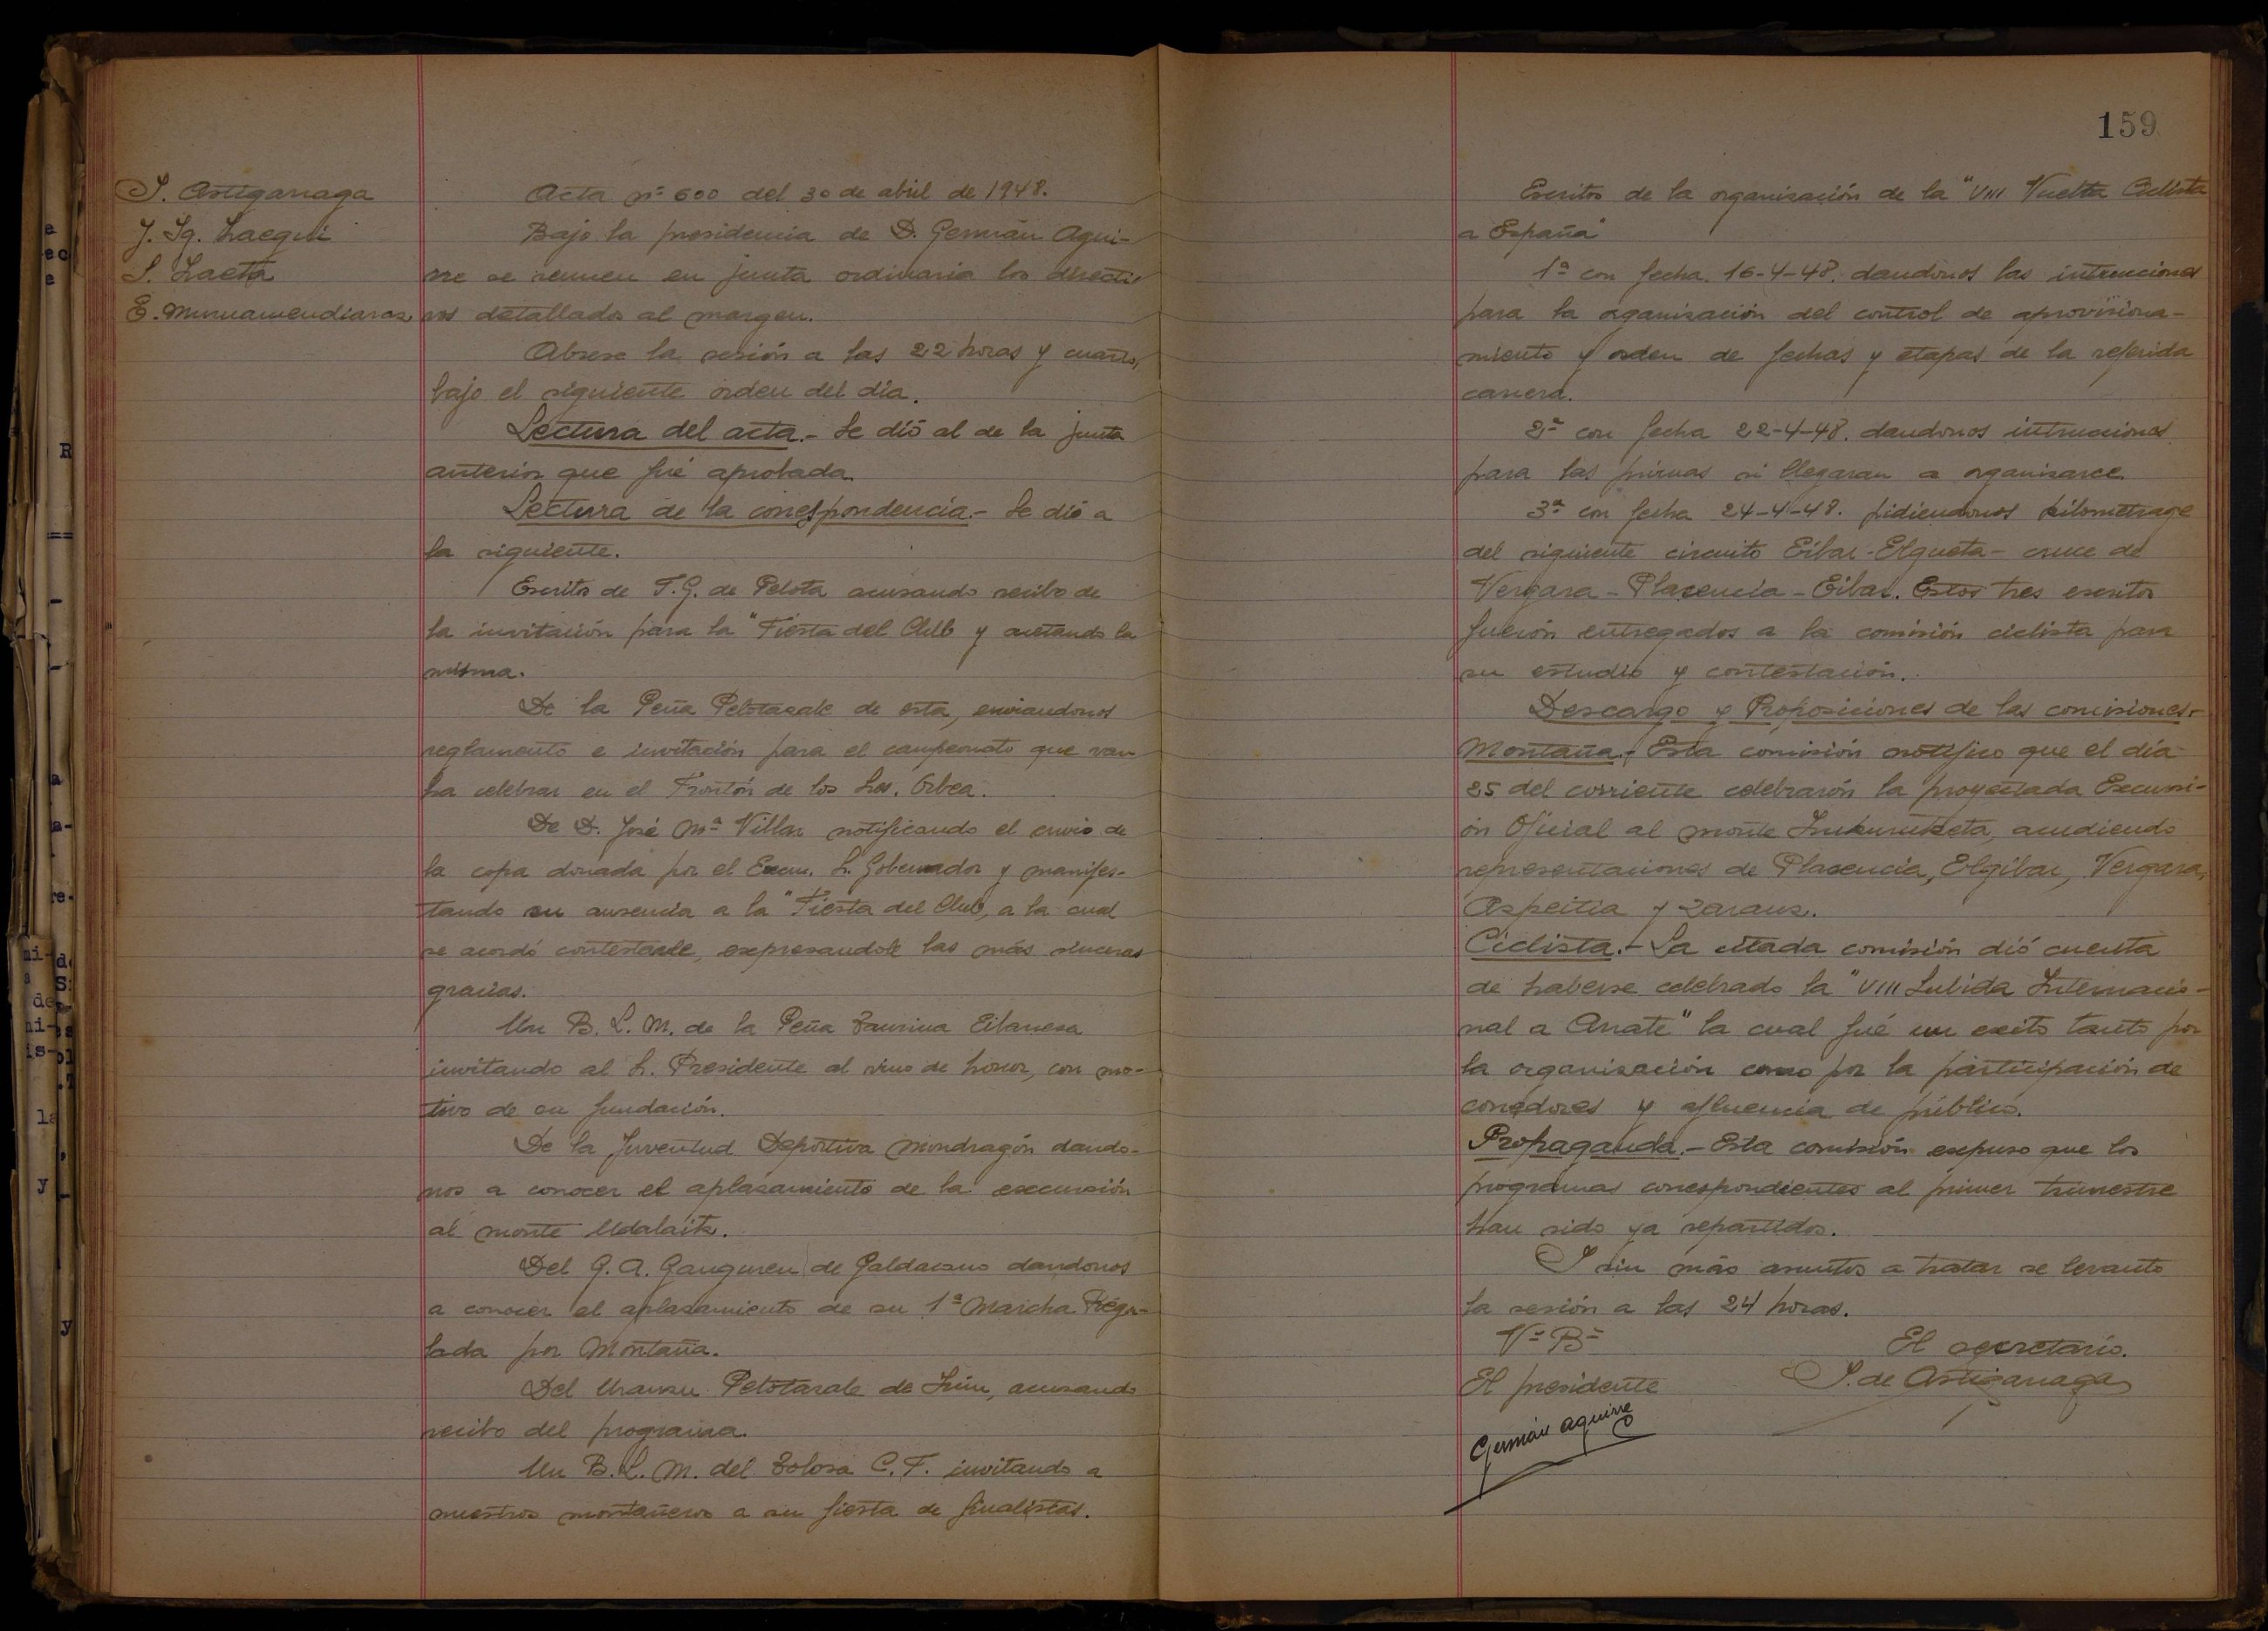 S. Astigarraga
J. Ig. Laegui
S. Laeta
E. Munuamendiaraz
Acta nº 600 del 30 de abril de 1948.
Bajo la presidencia de D. Germán Agui-
rre se reunen en junta ordinaria los directi-
vos detallados al margen.
Abrese la sesión a las 22 horas y cuarto,
bajo el siguiente orden del día.
Lectura del acta.- Se dió al de la junta
anterior que fué aprobada.
Lectura de la correspondencia.- Se dió a
la siguiente.
Escrito de F.G. de Pelota acusando recibo de
la invitación para la "Fiesta del Club y acetando la
misma.
De la Peña Pelotazale de esta, enviandonos
reglamento e invitación para el campeonato que van
ha celebrar en el Frontón de los Sres. Orbea.
De D. José Mª Villar notificando el envio de
la copa donada por el Excm. Sr. Gobernador y manifes-
tando su ausencia a la "Fiesta del Club, a la cual
se acordó contestarle, expresandole las más sinceras
gracias.
Un B. L. M. de la Peña Taurina Eibarresa
invitando al Sr. Presidente al vino de honor, con mo-
tivo de su fundación.
De la Juventud Deportiva Mondragón dando-
nos a conocer el aplazamiento de la excursión
al monte Udalaitz.
Del G. A. Ganguren de Galdacano dandonos
a conocer el aplazamiento de su 1ª Marcha Regu-
lada por Montaña.
Del Uranzu Pelotazale de Irún, acusando
recibo del programa.
Un B. L. M. del Tolosa C. F. invitando a
nuestros montañeros a su fiesta de finalistas.
159
Escritos de la organización de la "VIII Vuelta Ciclista
a España"
1ª con fecha 16-4-48. dandonos las intrucciones
para la organización del control de aprovisiona-
miento y orden de fechas y etapas de la referida
carrera.
2ª con fecha 22-4-48. dandonos intrucciones
para las primas si llegaran a organizarce.
3ª con fecha 24-4-48. pidiendonos kilometrage
del siguiente circuito Eibar-Elgueta-cruce de
Vergara-Placencia-Eibar. Estos tres escritos
fuerón entregados a la comisión ciclista para
su estudio y contestación.
Descargo y Proposiciones de las comisiones.-
Montaña.- Esta comisión notifico que el día
25 del corriente celebrarón la proyectada Excursi-
ón Oficial al monte Irukurutzeta, acudiendo
representaciones de Placencia, Elgibar, Vergara,
Azpeitia y Zarauz.
Ciclista.- La citada comisión dió cuenta
de haberse celebrado la "VIII Subida Internacio-
nal a Arrate" la cual fué un exito tanto por
la organización como por la participación de
corredores y afluencia de público.
Propaganda.- Esta comisión expuso que los
programas correspondientes al primer trimestre
han sido ya repartidos.
I sin más asuntos a tratar se levanto
la sesión a las 24 horas.
Vº Bº
El secretario.
El presidente
S. de Astigarraga
Germán Aguirre